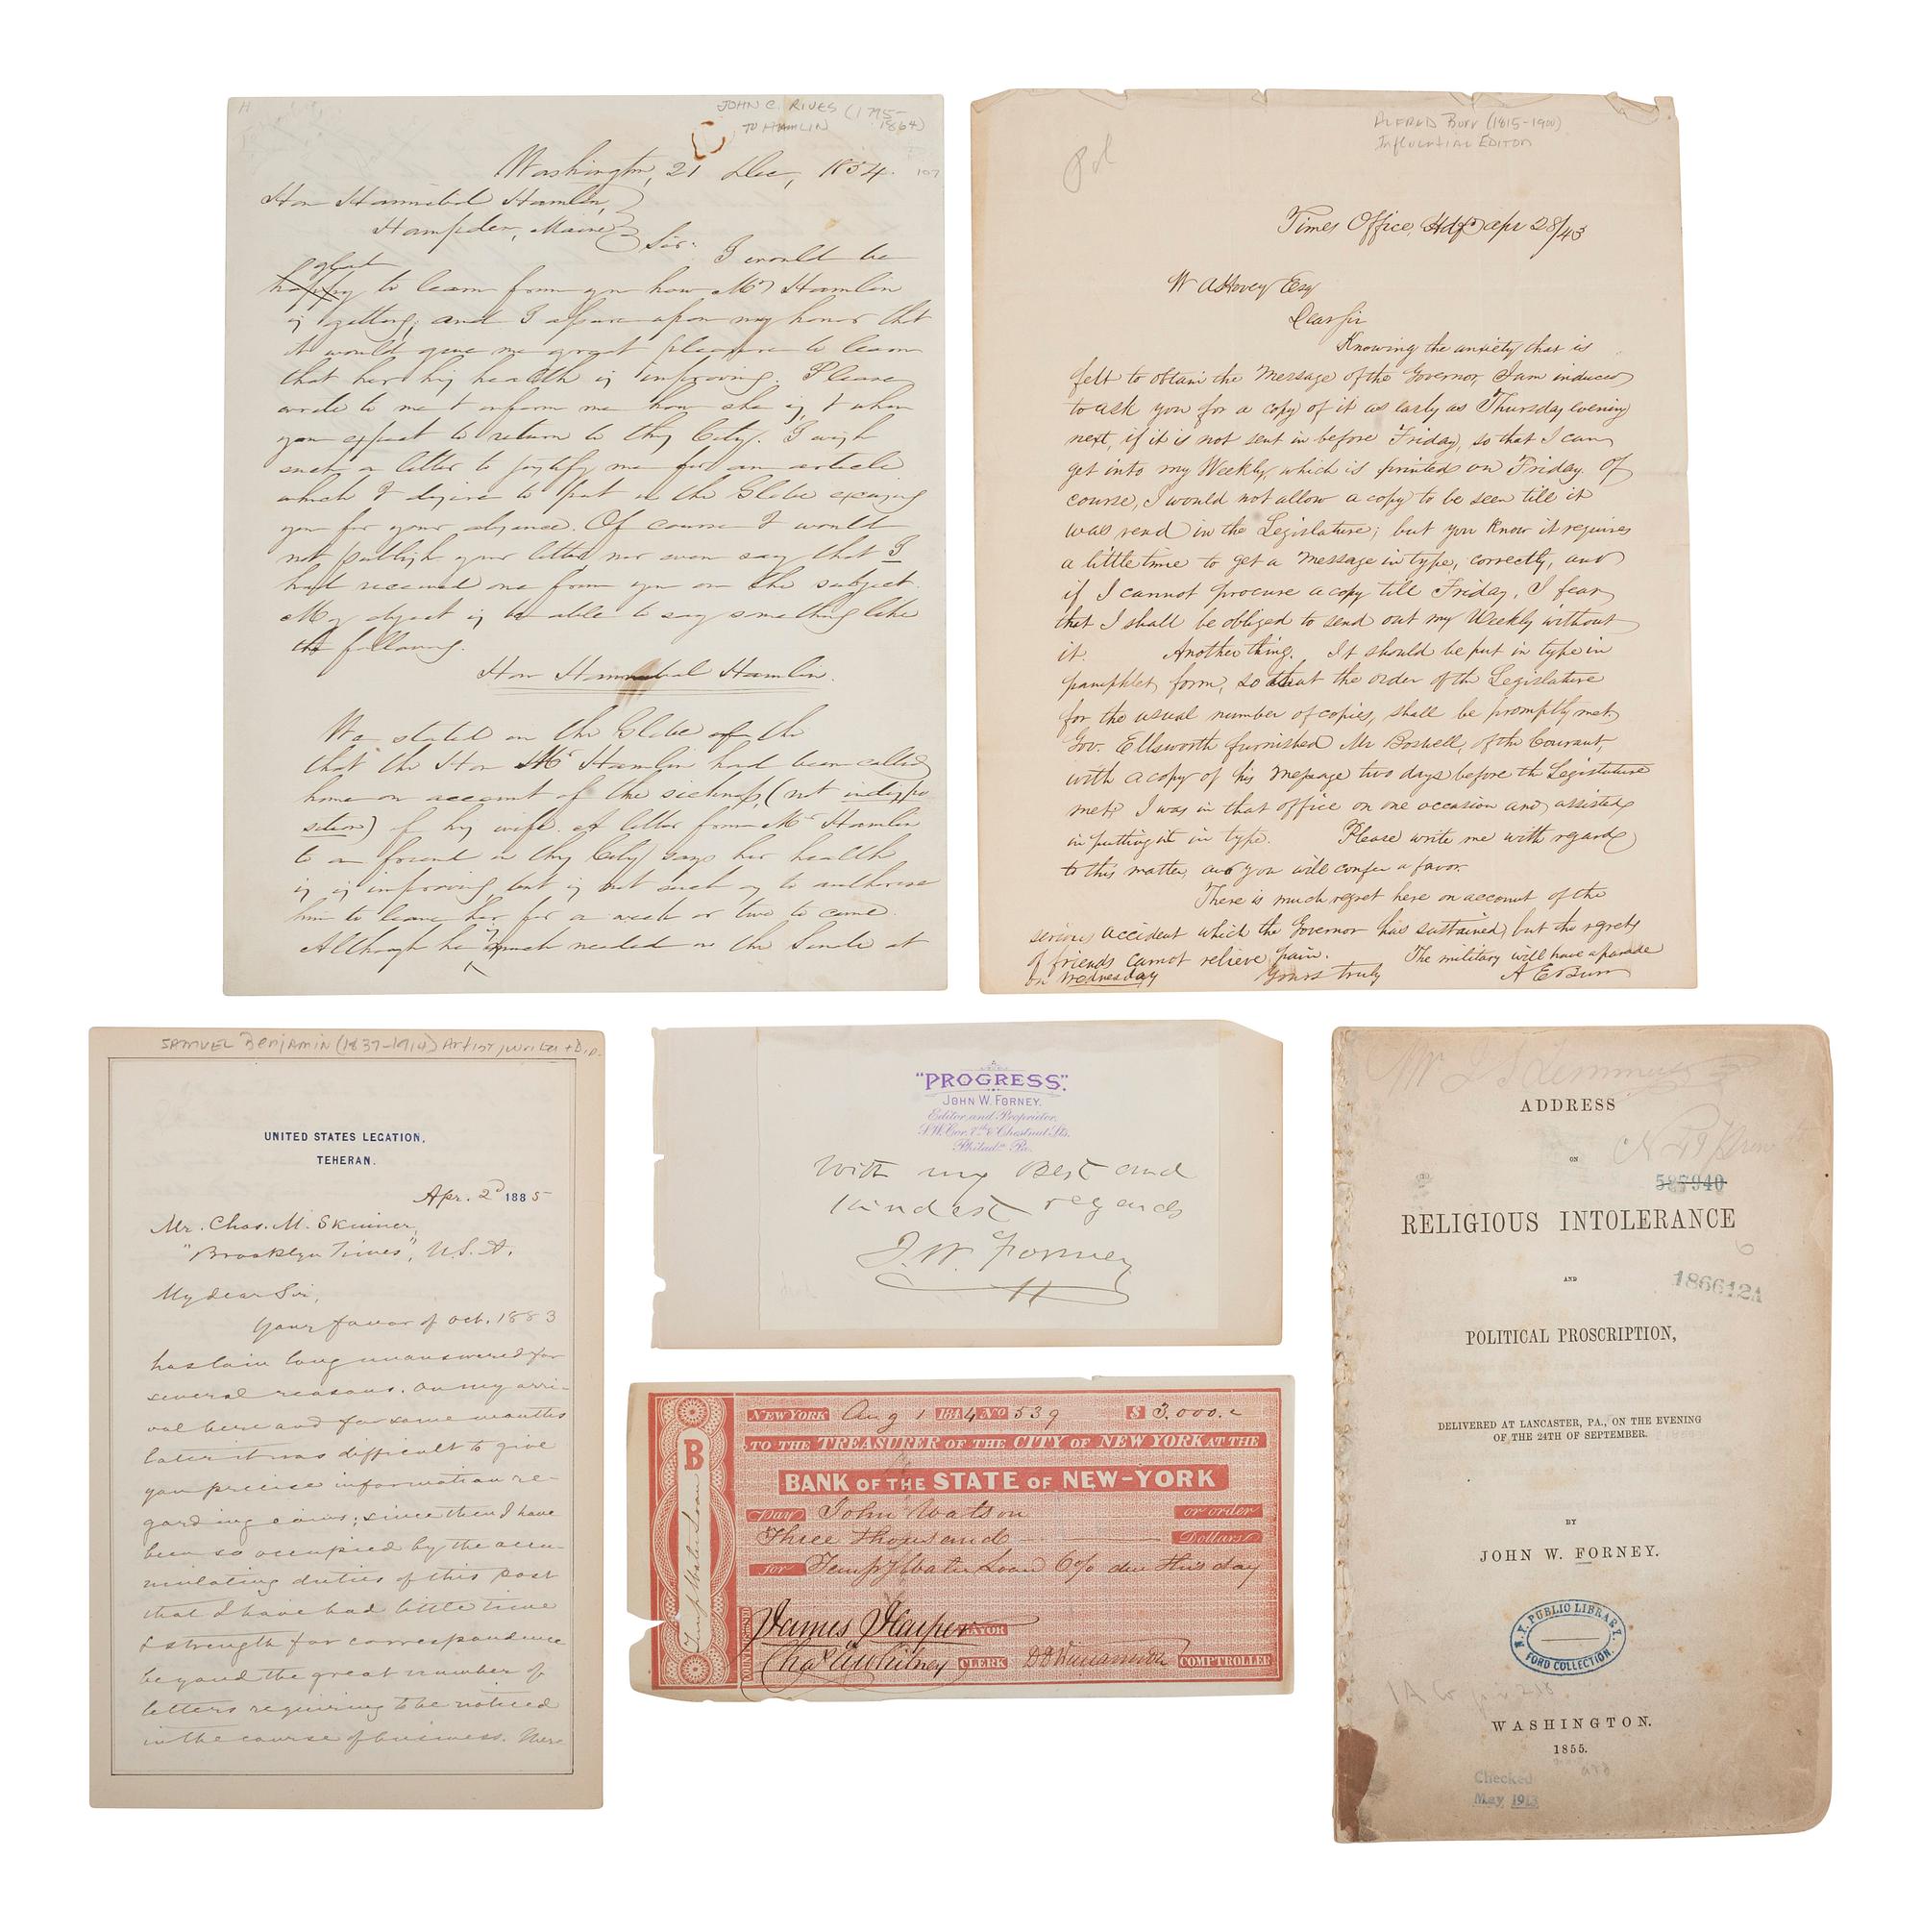 JOHN C. RIVES (1795-
1864)
TO HAMLIN
107
Washington, 21 Dec, 1854.
Hon Hannibal Hamlin,
Hampden, Maine
Sir: I would be
glad
happy to learn from you how Mrs Hamlin
is getting, and I assure upon my honor that
it would give me great pleasure to learn
that her health is improving. Please
write to me & inform me how she is, & when
you expect to return to this City. I wish
such a letter to justify me for an article
which I desire to put in the Globe excusing
you for your absence. Of course I would
not publish your letter nor even say that I
had received one from you on the subject.
My object is to able to say something like
the following.
Hon Hannibal Hamlin.
We stated in the Globe of the
that the Hon Mr Hamlin had been called
home on account of the sickness, (not indispo
sition) of his wife. A letter from Mr Hamlin
to a friend in this City says her health
is improving but is not such as to authorise
him to leave her for a week or two to come.
Although he is much needed in the Senate at
ALFRED Burr (1815-1900)
Influential EDITOR
Pol
Times Office, Hdfd apr 28/43
W A Hovey Esq
Dear Sir
Knowing the anxiety that is
felt to obtain the Message of the Governor, I am induced
to ask you for a copy of it as early as Thursday evening
next, if it is not sent in before Friday, so that I can
get into my Weekly, which is printed on Friday. Of
course, I would not allow a copy to be seen till it
was read in the Legislature; but you know it requires
a little time to get a Message in type, correctly, and
if I cannot procure a copy till Friday, I fear
that I shall be obliged to send out my Weekly without
it. Another thing. It should be put in type in
pamphlet form, so that the order of the Legislature
for the usual number of copies, shall be promptly met.
Gov. Ellsworth furnished Mr Boswell, of the Courant,
with a copy of his Message two days before the Legislature
met. I was in that office on one occasion and assisted
in putting it in type. Please write me with regard
to this matter, and you will confer a favor.
There is much regret here on account of the
serious accident which the Governor has sustained, but the regrets
of friends cannot relieve pain. The military will have a parade
on Wednesday Yours truly A E Burr
SAMUEL Benjamin (1837-1914) Artist, writer + Dip.
UNITED STATES LEGATION,
TEHERAN.
Apr. 2d 1885
Mr. Chas. M. Skinner,
"Brooklyn Times", U.S.A.
My dear Sir,
Your favor of Oct. 1883
has lain long unanswered for
several reasons. On my arri-
val here and for some months
later it was difficult to give
you precise information re-
garding coins; since then I have
been so occupied by the accu-
mulating duties of this post
that I have had little time
& strength for correspondence
beyond the great number of
letters requiring to be noticed
in the course of business. Were
"PROGRESS."
JOHN W. FORNEY.
Editor and Proprietor,
S.W. Cor. 7th & Chestnut Sts.
Philada. Pa.
With my Best and
Kindest regards
J. W. Forney
NEW YORK Aug 1 1844 No 539 $ 3.000.
TO THE TREASURER OF THE CITY OF NEW YORK AT THE
BANK OF THE STATE OF NEW-YORK
Pay John Watson or order
Three thousand Dollars
for Temp'y Water Loan 6% due this day
B
Temp Water Loan
COUNTERSIGNED
James Harper MAYOR
Chas A Whitney CLERK D D Williamson COMPTROLLER
ADDRESS
ON
585940
RELIGIOUS INTOLERANCE
AND
186612A
POLITICAL PROSCRIPTION,
DELIVERED AT LANCASTER, PA., ON THE EVENING
OF THE 24TH OF SEPTEMBER.
BY
JOHN W. FORNEY.
N.Y. PUBLIC LIBRARY.
FORD COLLECTION.
WASHINGTON.
1855.
Checked
May 1913